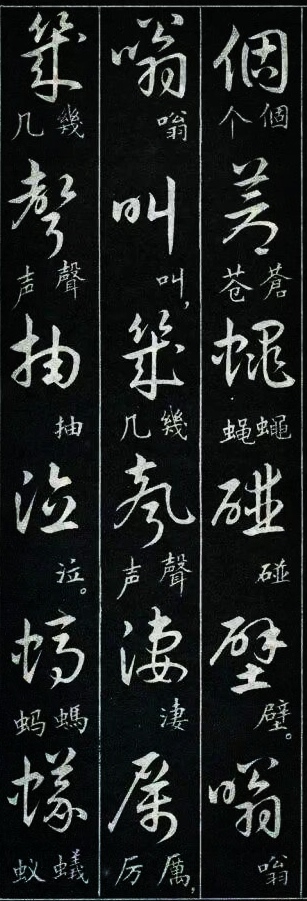 個 個个 蒼 蒼苍 蠅 蠅蝇 碰 碰 壁 壁。 嗡 嗡
嗡 嗡 叫 叫, 幾 幾几 聲 聲声 淒 淒 厲 厲,厉
幾 幾几 聲 聲声 抽 抽 泣 泣。 螞 螞蚂 蟻 蟻蚁